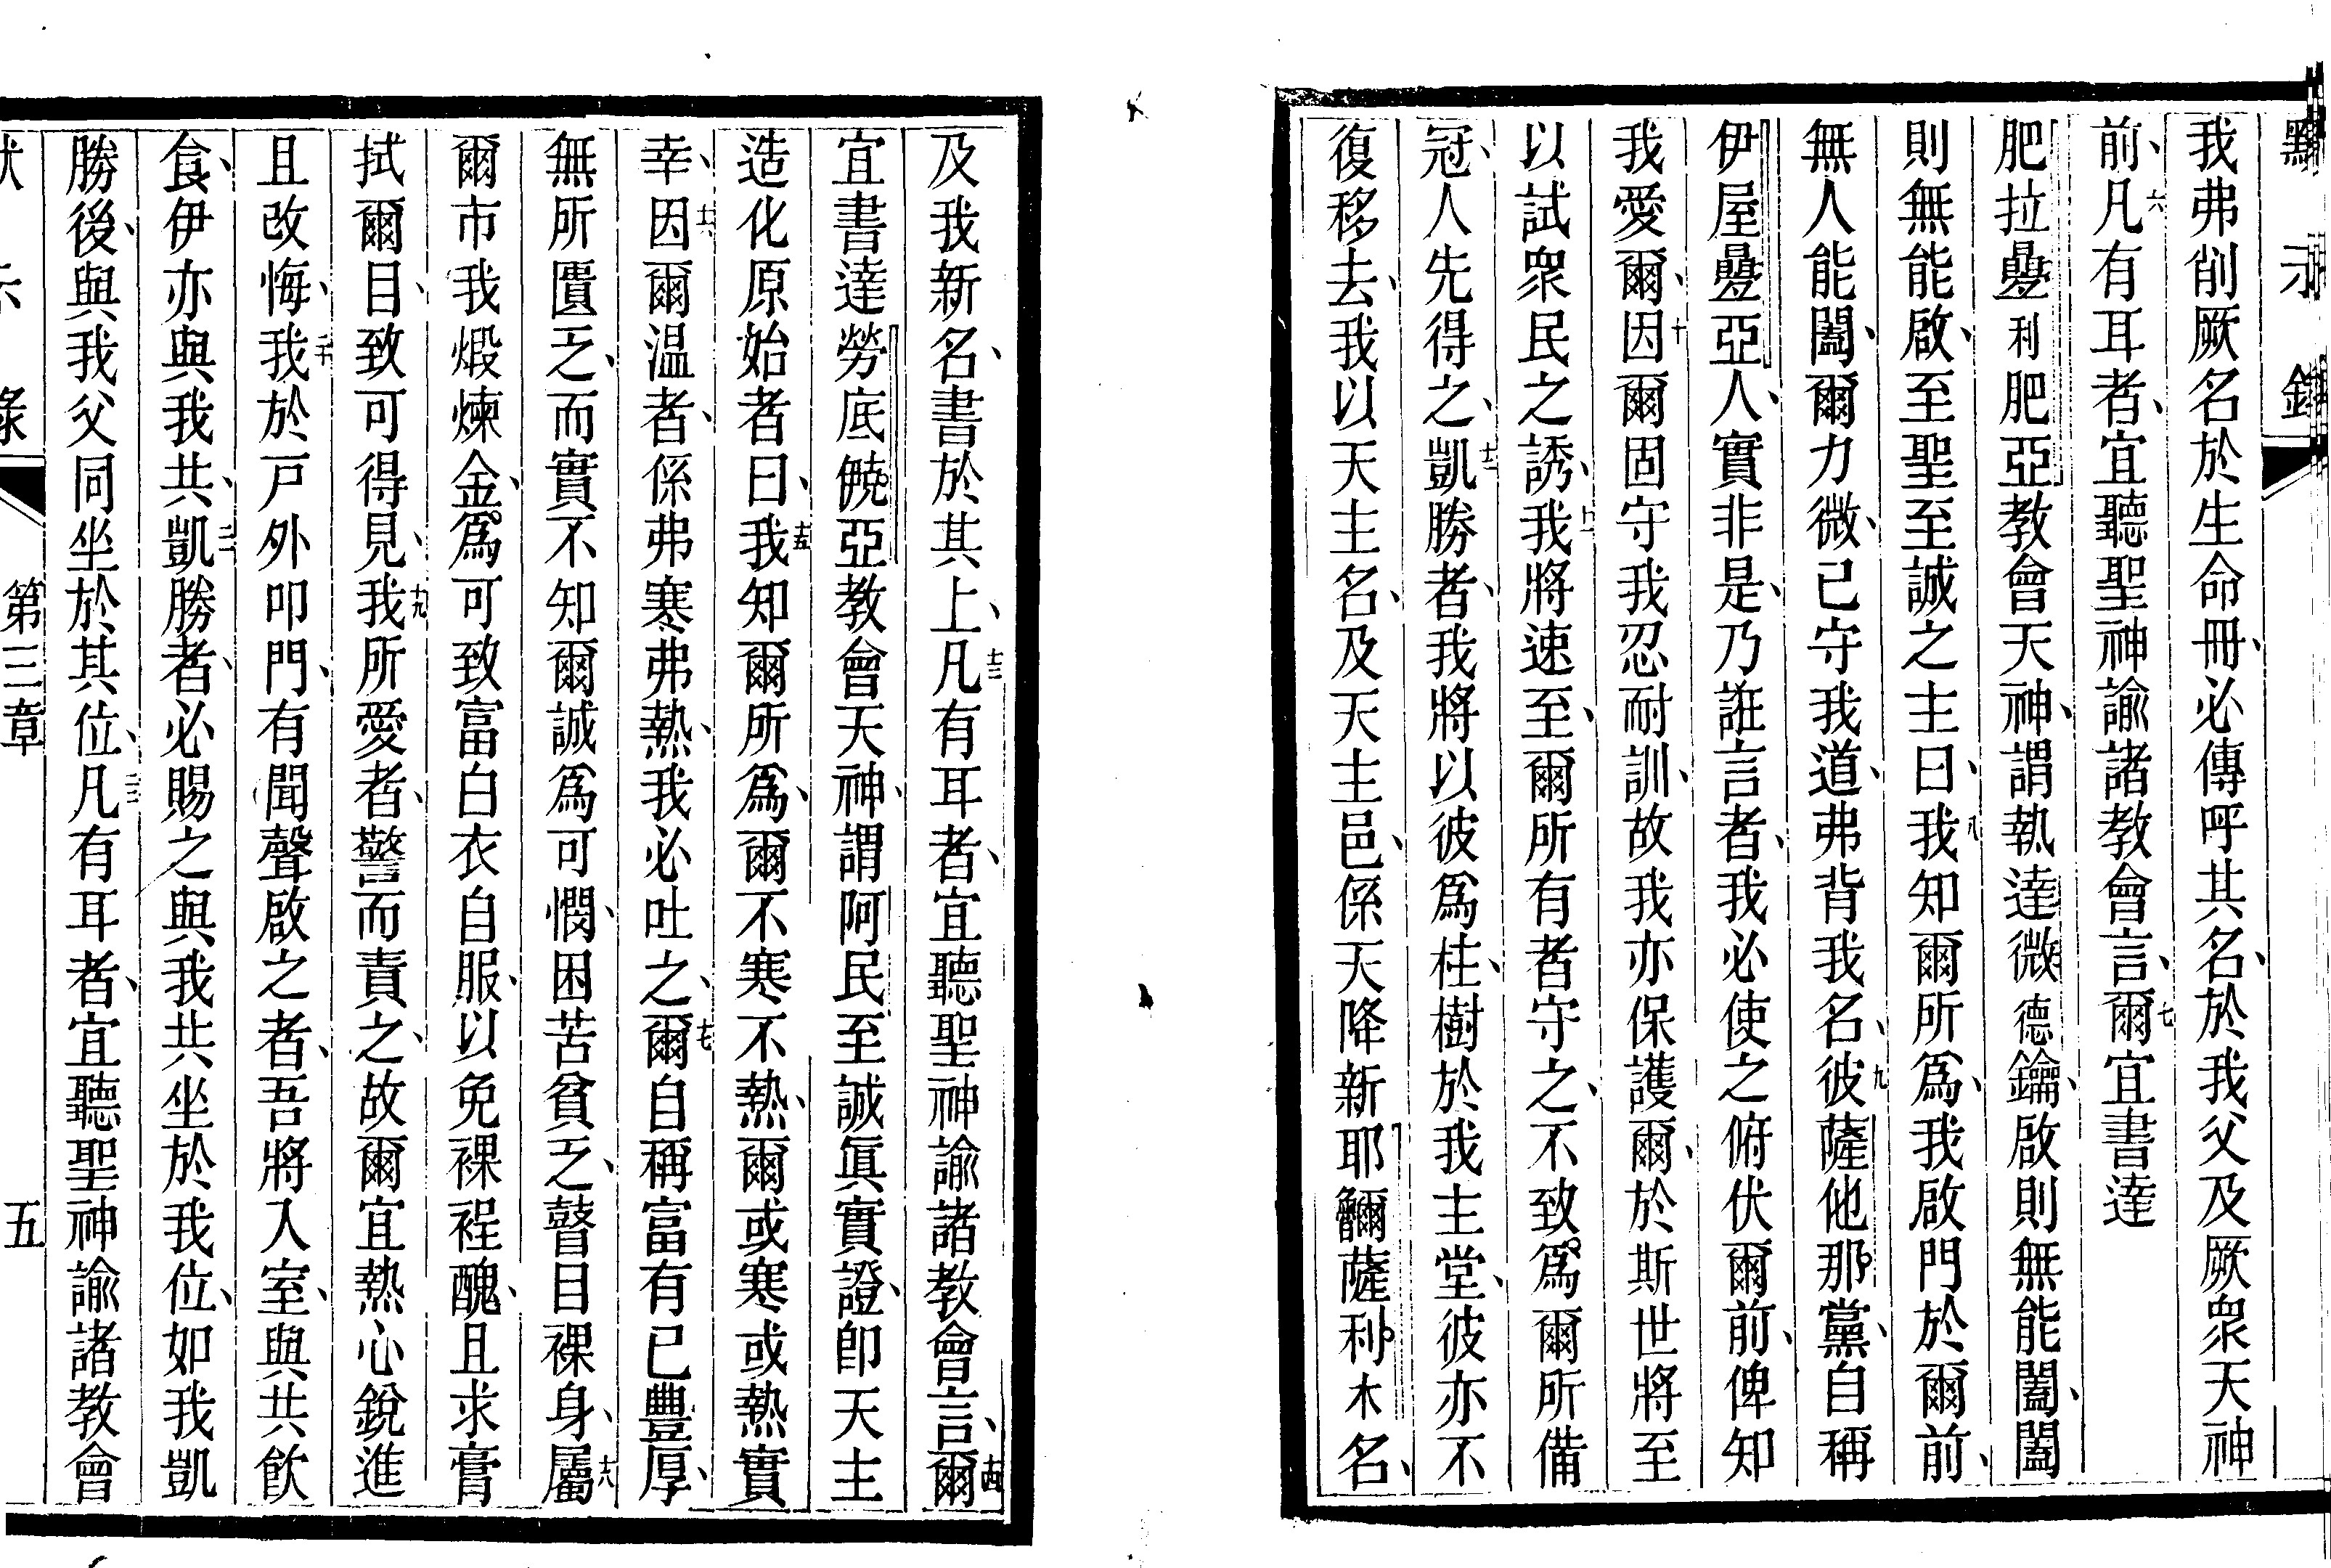 默示錄
我弗削厥名於生命冊、必傳呼其名、於我父及厥衆天神
前、六凡有耳者、宜聽聖神諭諸教會言、七爾宜書達
肥拉疊利肥亞教會天神、謂執達微德鑰、啟則無能闔、闔
則無能啟、至聖至誠之主曰、八我知爾所爲、我啟門於爾前、
無人能闔、爾力微、已守我道、弗背我名、九彼薩他那黨、自稱
伊屋疊亞人、實非是、乃誑言者、我必使之俯伏爾前、俾知
我愛爾、十因爾固守我忍耐訓、故我亦保護爾、於斯世將至
以試衆民之誘、十一我將速至、爾所有者守之、不致爲爾所備
冠、人先得之、十二凱勝者、我將以彼爲柱、樹於我主堂、彼亦不
復移去、我以天主名、及天主邑、係天降新耶䚈薩利木名、
及我新名、書於其上、十三凡有耳者、宜聽聖神諭諸教會言、十四爾
宜書達勞底𠑐亞教會天神、謂阿民至誠眞實證、卽天主
造化原始者曰、十五我知爾所爲、爾不寒不熱、爾或寒或熱實
幸、十六因爾温者、係弗寒弗熱、我必吐之、十七爾自稱富有已豐厚、
無所匱乏、而實不知爾誠爲可憫、困苦貧乏、瞽目裸身、十八屬
爾市我煅煉金、爲可致富白衣自服、以免裸裎醜、且求膏
拭爾目、致可得見、十九我所愛者、警而責之、故爾宜熱心銳進
且改悔、二十我於戶外叩門、有聞聲啟之者、吾將入室、與共飲
食、伊亦與我共、二一凱勝者、必賜之與我共坐於我位、如我凱
勝後、與我父同坐於其位、二二凡有耳者、宜聽聖神諭諸教會
默示錄 第三章 五